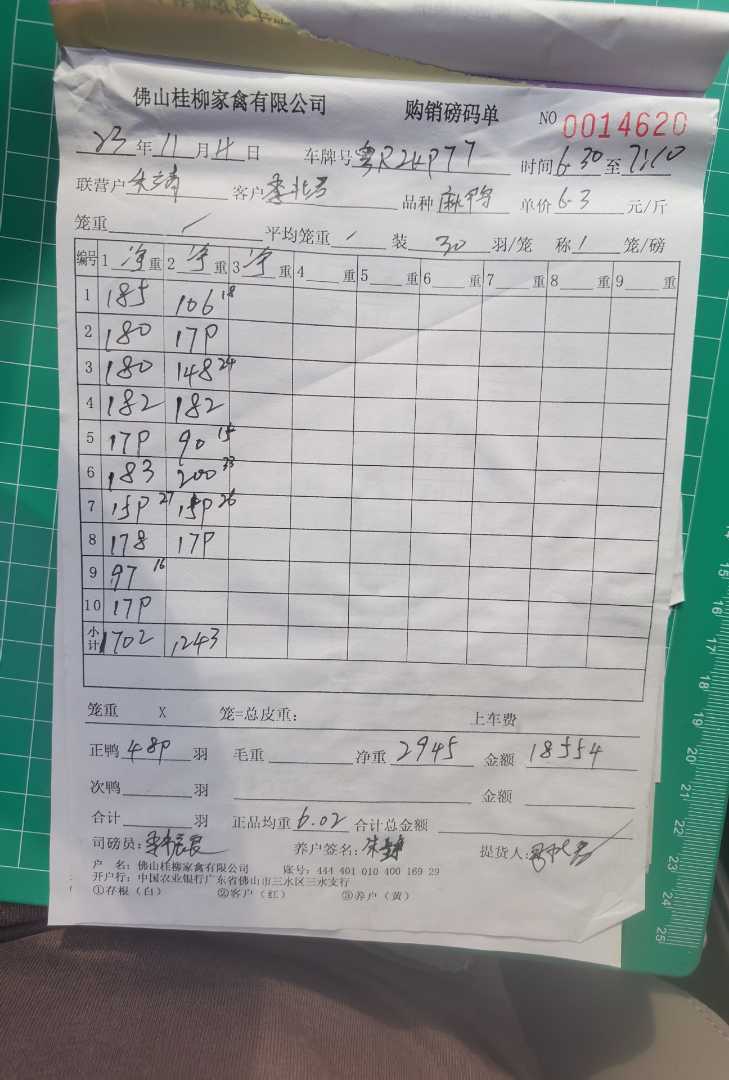 佛山桂柳家禽有限公司 购销磅码单 NO 0014620
23年11月4日 车牌号 粤R24P77 时间6.30至7:10
联营户 客户 品种 单价6.3 元/斤
笼重 / 平均笼重 / 装 30 羽/笼 称 1 笼/磅
编号 1 净重 2 净重 3 净重 4 重 5 重 6 重 7 重 8 重 9 重
1 185 106 18
2 180 179
3 180 148 24
4 182 182
5 179 90 15
6 183 200 33
7 159 27 159 26
8 178 179
9 97 16
10 179
小计 1702 1243
笼重 X 笼=总皮重: 上车费
正鸭 489 羽 毛重 净重 2945 金额 18554
次鸭 羽 金额
合计 羽 正品均重 6.02 合计总金额
司磅员: 养户签名: 提货人:
户 名: 佛山桂柳家禽有限公司 账号: 444 401 010 400 169 29
开户行: 中国农业银行广东省佛山市三水区三水支行
①存根(白) ②客户(红) ③养户(黄)
15
16
17
18
19
20
21
22
23
24
25